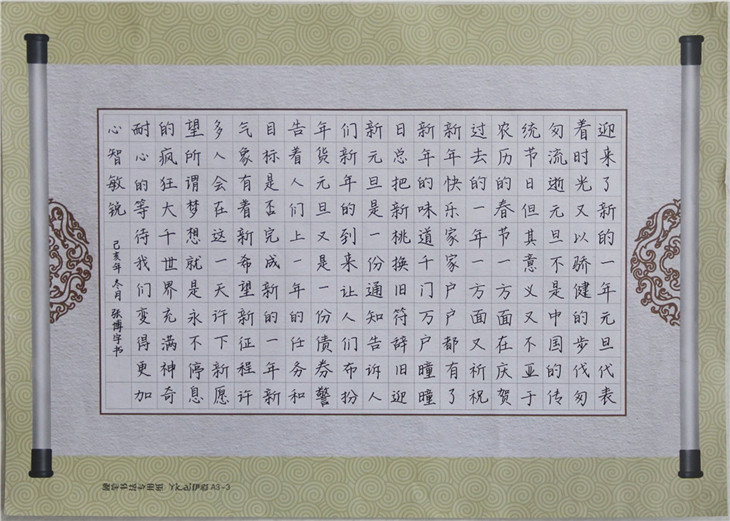 迎来了新的一年元旦代表
着时光又以骄健的步伐匆
匆流逝元旦不是中国的传
统节日但其意义又不亚于
农历的春节一方面又在庆贺
过去的一年一方面又祈祝
新年快乐家家户户都有了
新年的味道千门万户曈曈
日总把新桃换旧符辞旧迎
新元旦是一份通知告诉人
们新年的到来让人们布扮
年货元旦又是一份债券警
告着人们上一年的任务和
目标是否完成新的一年新
气象有着新希望新征程许
多人会在这一天许下新愿
望所谓梦想就是永不停息
的疯狂大千世界充满神奇
耐心的等待我们变得更加
心智敏锐
己亥年冬月 张博字书
A3-3